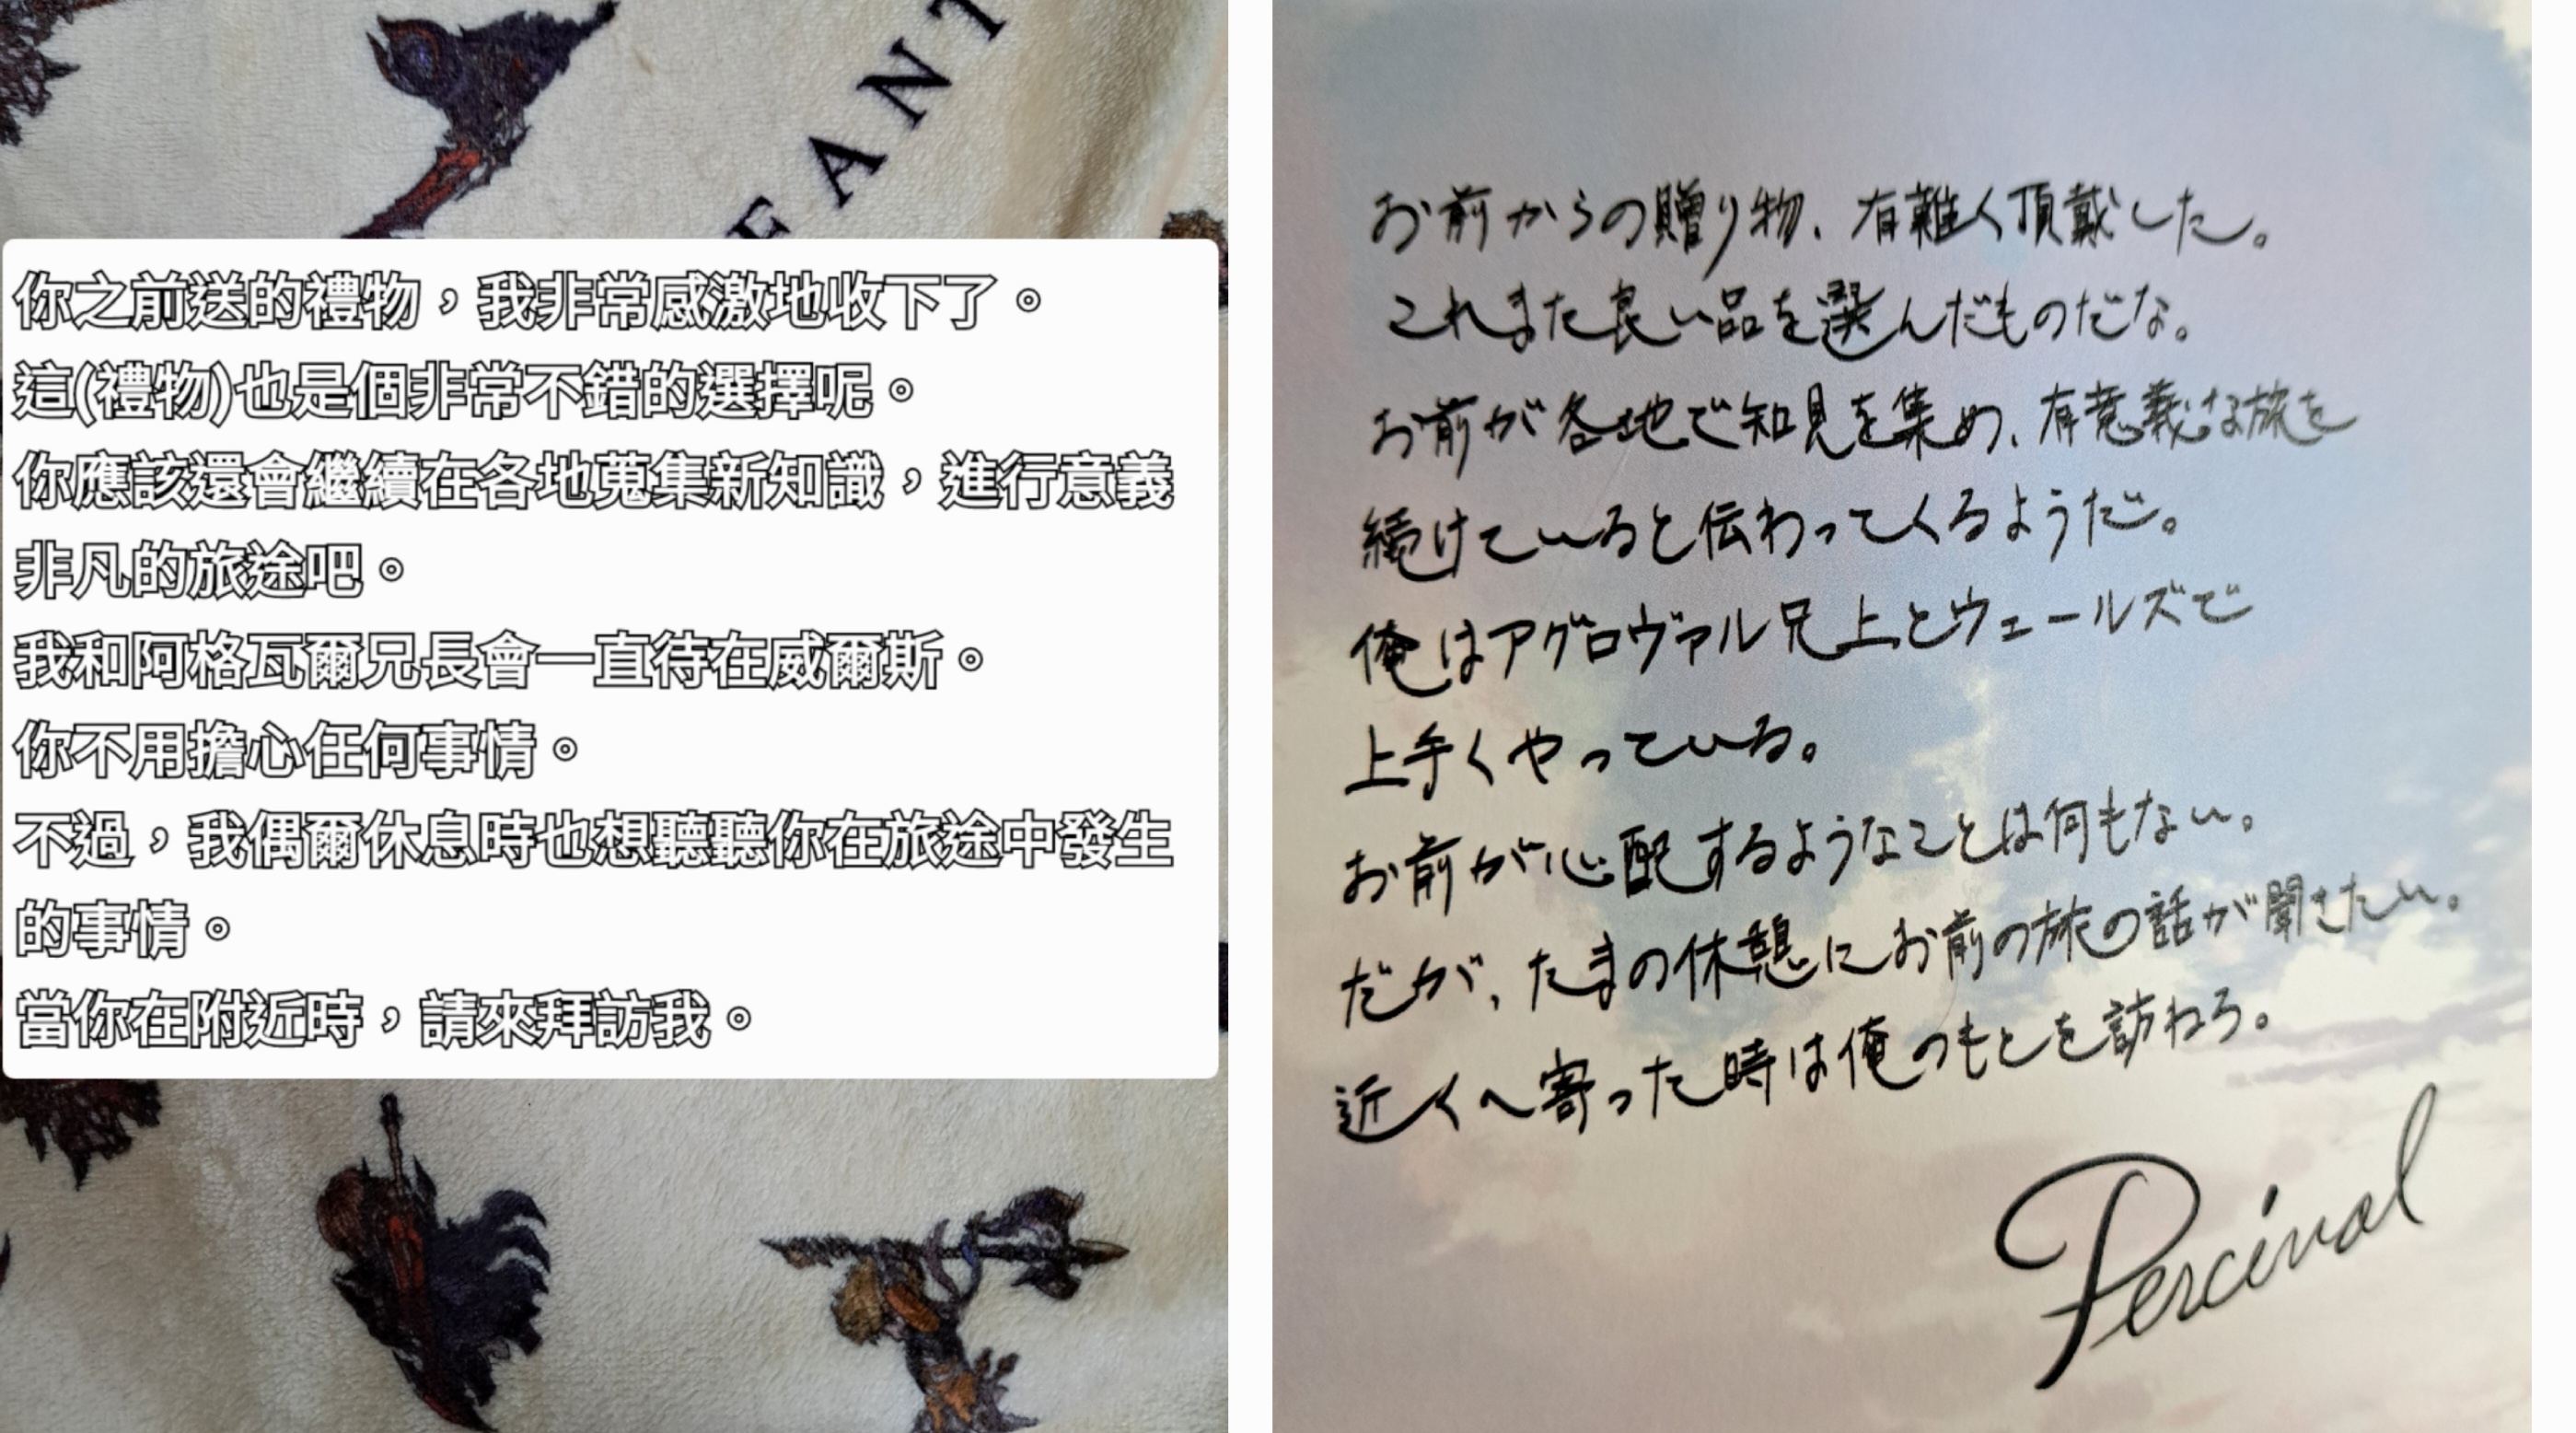 EANT
你之前送的禮物，我非常感激地收下了。
這(禮物)也是個非常不錯的選擇呢。
你應該還會繼續在各地蒐集新知識，進行意義
非凡的旅途吧。
我和阿格瓦爾兄長會一直待在威爾斯。
你不用擔心任何事情。
不過，我偶爾休息時也想聽聽你在旅途中發生
的事情。
當你在附近時，請來拜訪我。
お前からの贈り物、有難く頂戴した。
これまた良い品を選んだものだな。
お前が各地で知見を集め、有意義な旅を
続けていると伝わってくるようだ。
俺はアグロヴァル兄上とウェールズで
上手くやっている。
お前が心配するようなことは何もない。
だが、たまの休憩にお前の旅の話が聞きたい。
近くへ寄った時は俺のもとを訪ねろ。
Percival